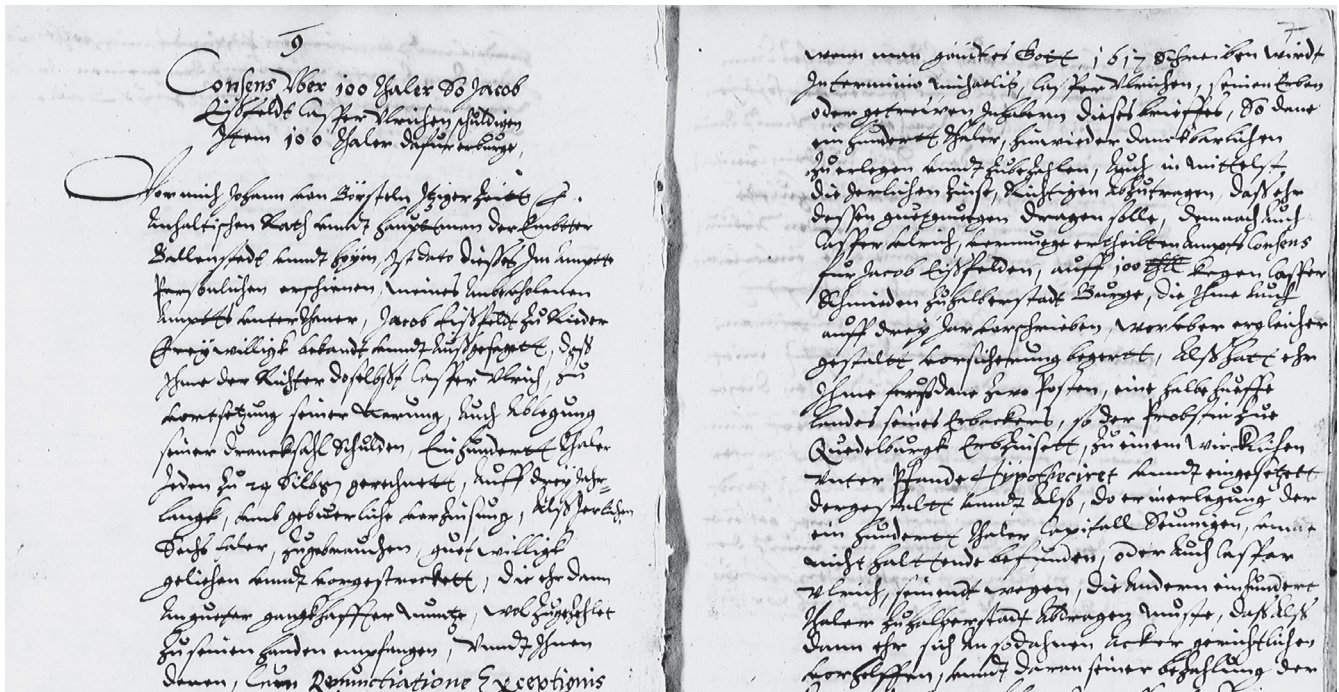 9
Consens Vber 100 Thaler So Jacob
Eißfeldt Casper Vlrichen schuldigen
Item 100 Thaler dafur er burge,
Vor mich Johann von Börsteln Itziger Zeitt F.
Anhaltischen Rath vnndt Hauptman der Embtter
Ballenstedt vnndt Hoym, Ist dato dieses Im Ampte
Persönlichen erschienen, meines Anbefholenen
Ampts vnterthaner, Jacob Eißfeldt zu Rieder
Freywilligk bekandt vnndt Außgesagett, daß
Ihme der Richter doselbst Casper Vlrich, zu
vortsetzung seiner Narung, Auch Ablegung
seiner drancksahl Schulden, Ein hundertt Thaler
Jeden zu 24 Silbgr gerechnett, Auff drey Jahr-
langk, vmb gebuerliche verzinsung, Alß Jerlichen
Sechs taler, zugebrauchen, guetwilligk
geliehen vnndt vorgestreckett, die ehr dann
An gueter gangkhaffter Muntze, wol zugezehlet
zu seinen handen empfangen, Vnndt Ihnen
denen, Cum Renunctiatione Exceptionis
7
wenn man geliebts Gott 1617 Schreiben wirdt
In termino Michaelis, Casper Vlrichen, seinen Erben
oder getrewen Inhabern dieses brieffes, So dane
ein hundertt thaler, hinwieder danckbarlichen
zu erlegen vnndt zubezahlen, Auch in mittelst
die Jerlichen Zinse, Richtigen Abzutragen, daß ehr
dessen gnug dragen solle, demnach Auch
Casper Vlrich, vermuege ertheilten Ampts Consens
fur Jacob Eißfelden, auff 100 kegen Casper
Schmieden zu Halberstadt Burge, die Ihme Auch
auff drey Jar vorschrieben, woruber er gleicher
gestaltt vorsicherung begertt, Alß hatt ehr
Ihme fur dane zwo Posten, eine halbe hueffe
Landes seines Erbackers, so der Probstin zue
Quedlburgk Erbzinsett, zu einem Wircklichen
Vnter Pfande Hypotheciret vnndt eingesetzett
dergestaltt vnndt Alß, do er in erlegung der
ein hundertt thaler Capitall Seumigen, vnnd
nicht halttende befunden, oder Auch Casper
Vlrich, seinendt wegen, die Andern einhundert
thaler zu Halberstadt Abdragen muste, daß Alß
dann ehr sich An sodahnen Acker gerichtlichen
vorhelffen, vnndt daran seiner bezahlung der